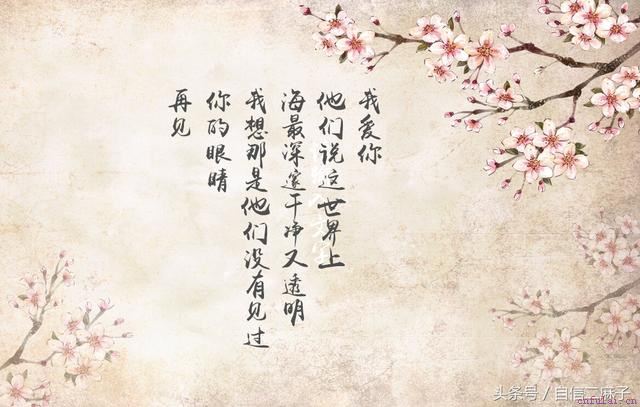 我爱你
他们说这世界上
海最深邃干净又透明
我想那是他们没有见过
你的眼睛
再见
头条号／自信二麻子
cnfulai.cn